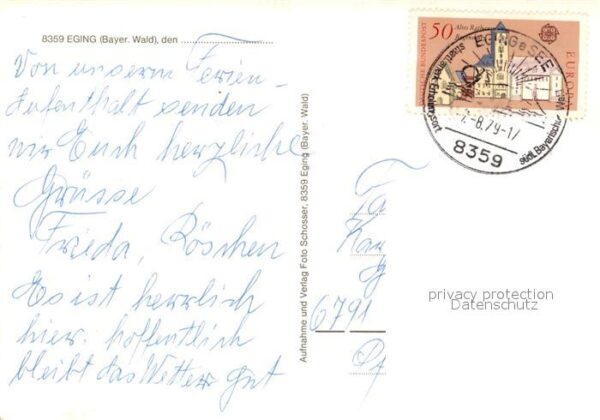 8359 EGING (Bayer. Wald), den
Von unserm Ferien-
Aufenthalt senden
wir Euch herzliche
Grüsse
Frieda, Röschen
Es ist herrlich
hier. hoffentlich
bleibt das Wetter gut
Aufnahme und Verlag Foto Schosser, 8359 Eging (Bayer. Wald)
50
Altes Rathaus
DEUTSCHE BUNDESPOST
EUROPA
EGING a SEE
8.79-17
8359
südl. Bayerischer Wald
Fa
Kar
6791
privacy protection
Datenschutz